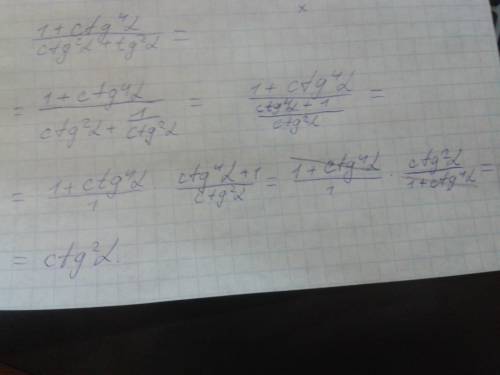 x
(1 + ctg⁴α)/(ctg²α + tg²α) =
= (1 + ctg⁴α)/(ctg²α + 1/ctg²α) = (1 + ctg⁴α)/((ctg⁴α + 1)/ctg²α) =
= (1 + ctg⁴α)/1 (ctg⁴α + 1)/ctg²α = (1 + ctg⁴α)/1 · ctg²α/(1 + ctg⁴α) =
= ctg²α.